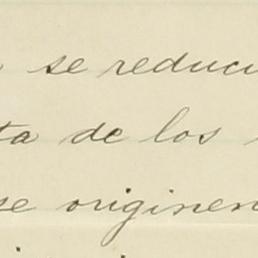 se reduci
ta de los
se originen